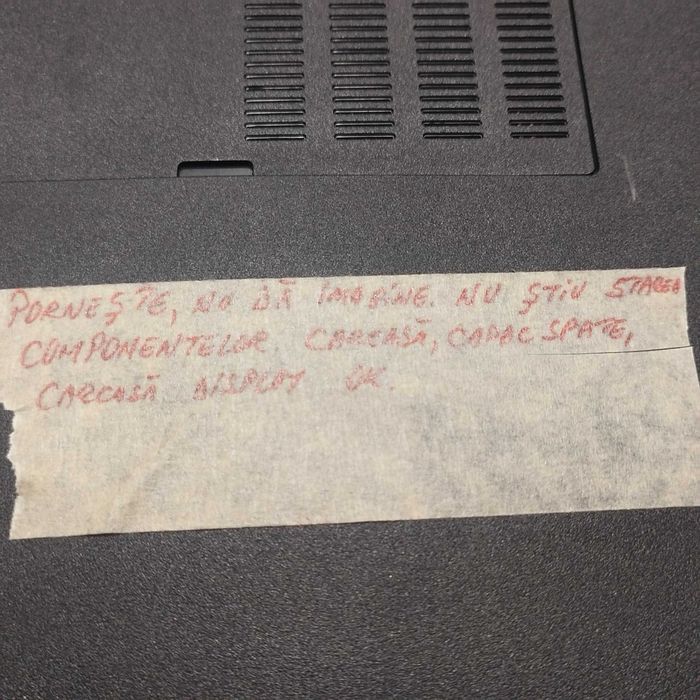 PORNEȘTE, NU DĂ IMAGINE. NU ȘTIU STAREA
COMPONENTELOR CARCASĂ, CAPAC SPATE,
CARCASĂ DISPLAY OK.